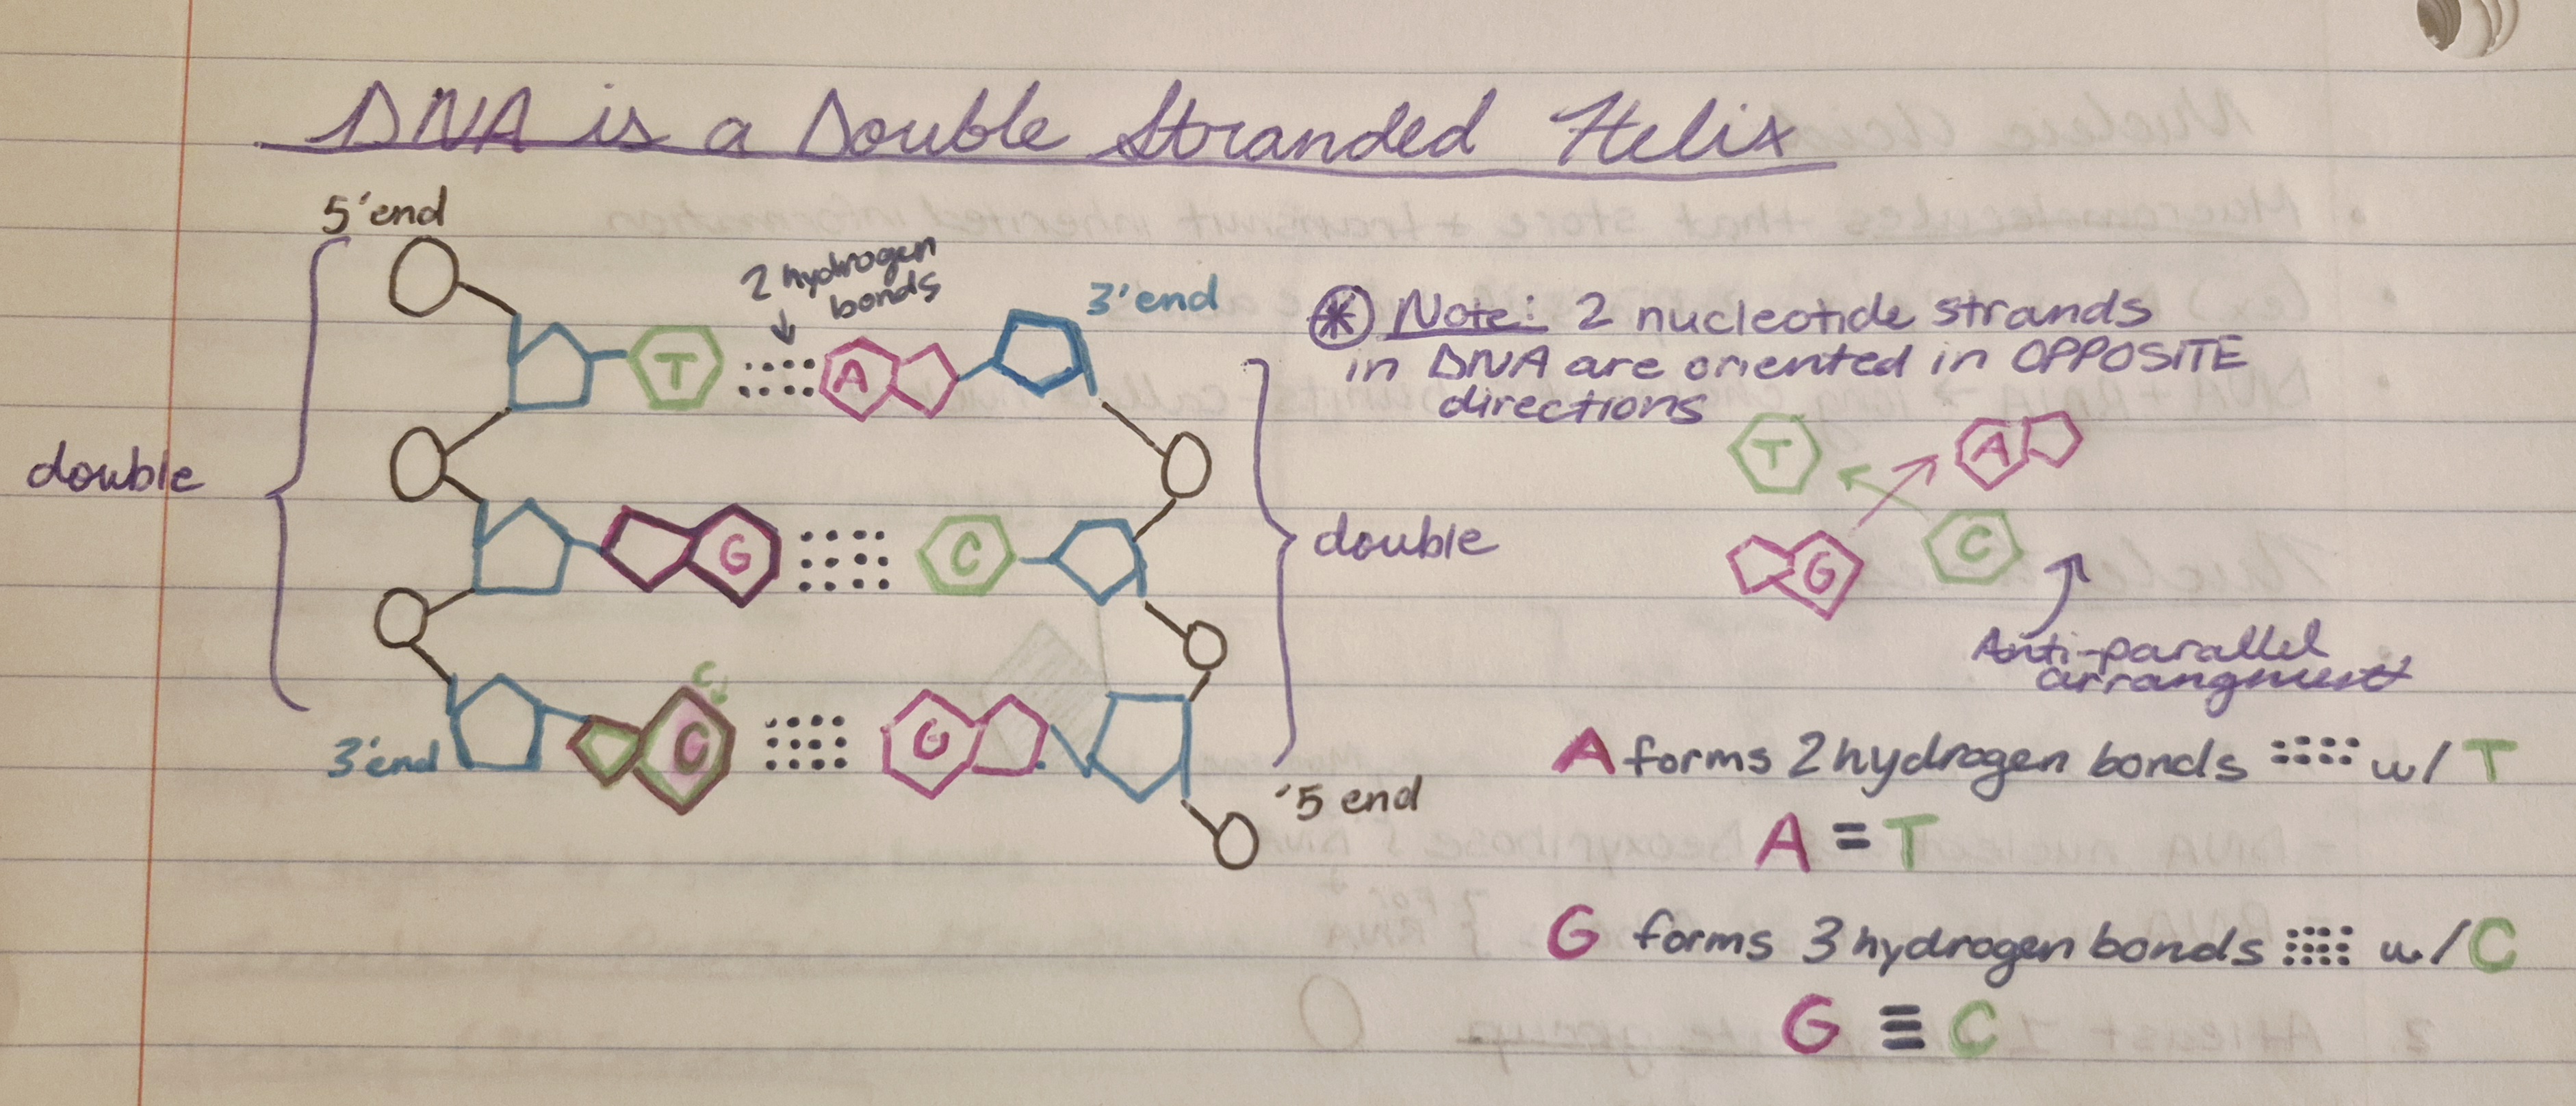 DNA is a Double Stranded Helix
5' end
2 hydrogen
bonds
3' end
T
A
double
G
C
double
C
C
G
3' end
'5 end
* Note: 2 nucleotide strands
in DNA are oriented in OPPOSITE
directions
T
A
G
C
Anti-parallel
arrangment
A forms 2 hydrogen bonds :::: w/ T
A = T
G forms 3 hydrogen bonds w/ C
G ≡ C